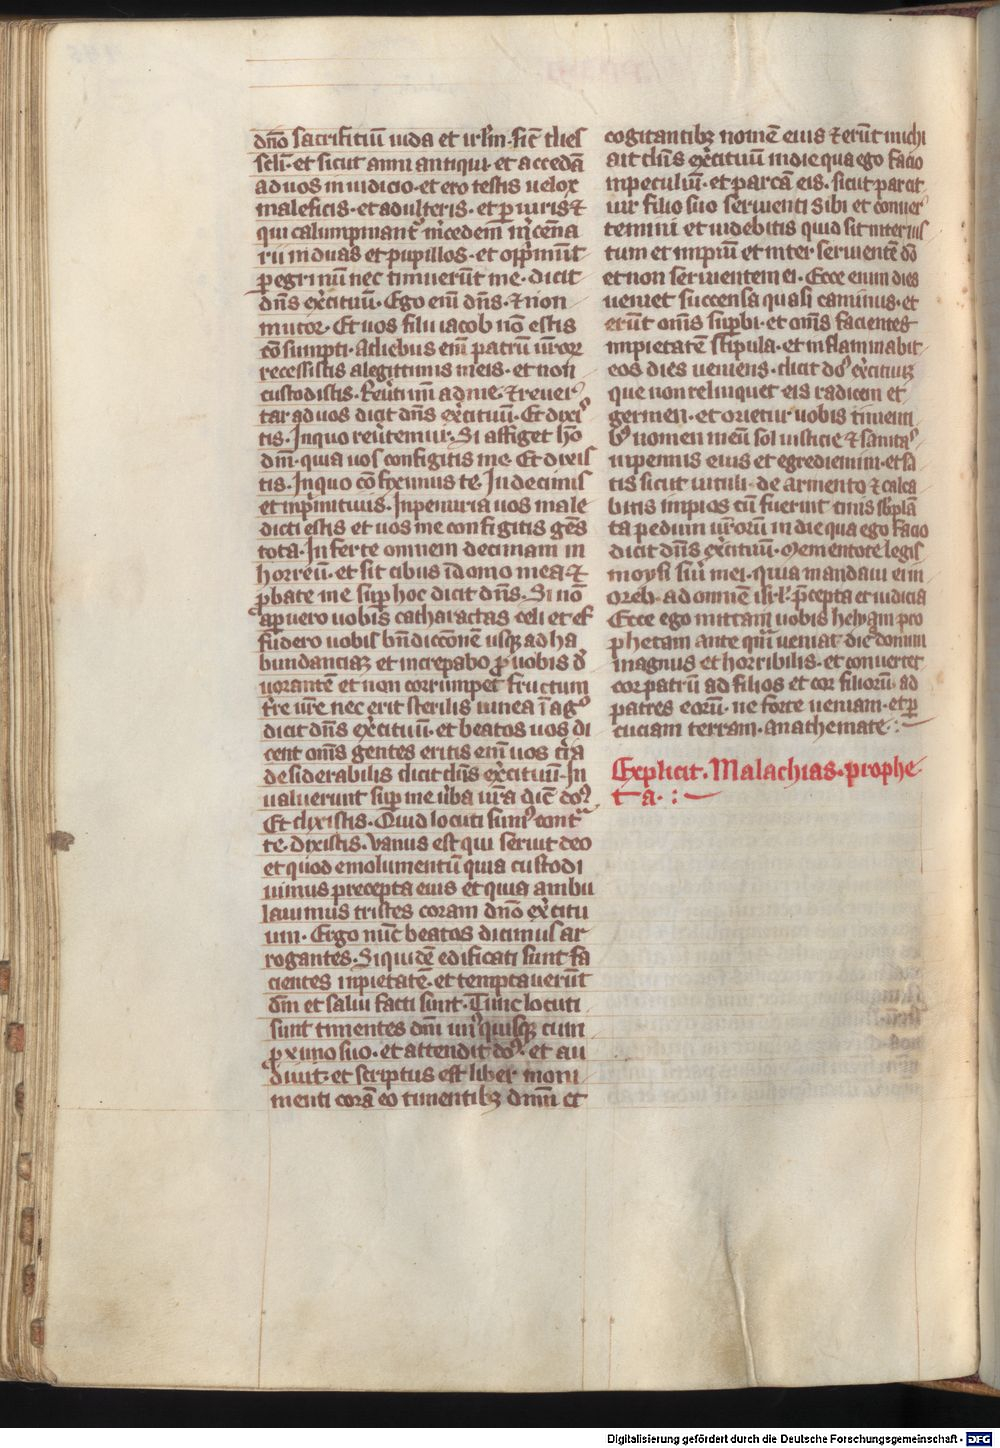 dño sacrificiū iuda et irl̄m. sic̄ dies
sc̄li. et sicut anni antiqui. et accedā
ad uos in iudicio. et ero testis uelox
maleficis. et adulteris. et ꝑiuris ⁊
qui calumpniant᷑ m̄cedem m̄cēna
rii uiduas et pupillos. et opp̄mūt
ꝑegrinū nec timuerūt me. dicit
dn̄s ex̄cituū. Ego eni᷑ dn̄s. ⁊ non
mutor. Et uos filii iacob nō estis
cōsumpti. A diebus eni᷑ patrū ur̄or
recessistis a legittimis meis. et non
custodistis. Reūtimi᷑ ad me. ⁊ reuer
tar ad uos dicit dn̄s ex̄cituū. Et dixi
tis. In quo reūtemur. Si affiget hō
dm̄. quia uos configitis me. Et dixis
tis. In quo cōfiximus te. In decimis
et in p̄mitiuis. In penuria uos male
dicti estis et uos me configitis gēs
tota. Inferte omnem decimam in
horreū. et sit cibus ī domo mea ⁊
ꝓbate me suꝑ hoc dicit dn̄s. Si nō
apuero uobis catharactas celi et ef
fudero uobis bn̄diccōnē usqꝫ ad ha
bundanciaꝫ et increpabo ꝓ uobis d̄
uorantē et non corrumpet fructum
t̄re ur̄e nec erit sterilis uinea ī ag
dicit dn̄s ex̄cituū. et beatos uos di
cent om̄s gentes eritis eni᷑ uos t̄ra
desiderabilis dicit dn̄s ex̄cituū. In
ualuerunt suꝑ me ūba ur̄a dic̄ do
Et dixistis. Quid locuti sum᷒ cont
te. dixistis. Vanus est qui seruit deo
et quod emolumentū quia custodi
uimus precepta eius et quia ambu
lauimus tristes coram dn̄o ex̄citu
um. Ergo nūc beatos dicimus ar
rogantes. Siquidē edificati sunt fa
cientes inpietatē. et temptauerūt
dm̄ et salui facti sunt. Tunc locuti
sunt timentes dm̄ un᷒quisqꝫ cum
ꝓximo suo. et attendit do᷒. et au
diuit. et scriptus est liber moni
menti corā eo timentibꝫ dnm̄ et
cogitantibꝫ nomē eius ⁊ erūt michi
ait dn̄s ex̄cituū in die qua ego facio
in peculiū. et parcā eis. sicut parcit
uir filio suo seruienti sibi et conuer
temini et uidebitis quid sit inter ius
tum et impiū et inter seruientē dō
et non seruientem ei. Ecce enim dies
ueniet succensa quasi caminus. et
erūt om̄s suꝑbi. et om̄s facientes
impietatē stipula. et inflammabit
eos dies ueniens. dicit do᷒ ex̄cituū
que non relinquet eis radicem et
germen. et orietur uobis timenti
b᷒ nomen meū sol iusticie ⁊ sanitas
in pennis eius et egrediemini. et sa
tis sicut uituli de armento ⁊ calca
bitis impios cū fuerint cinis sb̄ plan
ta pedum ur̄orū in die qua ego facio
dicit dn̄s ex̄cituū. Mementote legis
moysi sui᷑ mei. quia mandaui ei in
oreb. ad omnē isrl̄. p̄cepta et iudicia
Ecce ego mittam uobis helyam pro
phetam ante qm̄ ueniat dies domini
magnus et horribilis. et conuertet
cor patrū ad filios et cor filiorū ad
patres eorū. ne forte ueniam. et ꝑ
cuciam terram. anathemate.
Explicit. Malachias. prophe
ta.
Digitalisierung gefördert durch die Deutsche Forschungsgemeinschaft - DFG